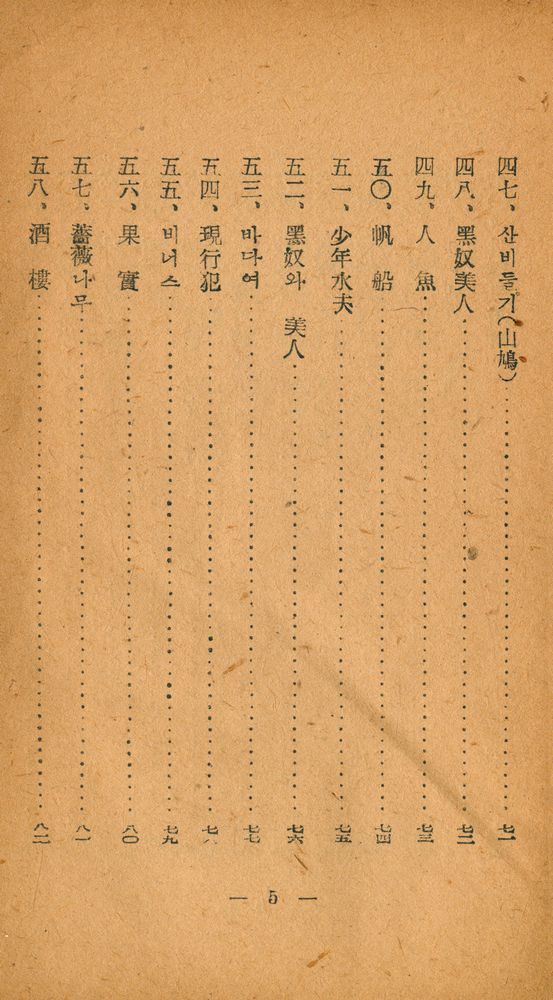 四七、산비들기(山鳩)……七一
四八、黑奴美人……七二
四九、人魚……七三
五〇、帆船……七四
五一、少年水夫……七五
五二、黑奴와 美人……七六
五三、바다여……七七
五四、現行犯……七八
五五、비너스……七九
五六、果實……八〇
五七、薔薇나무……八一
五八、酒樓……八二
— 5 —